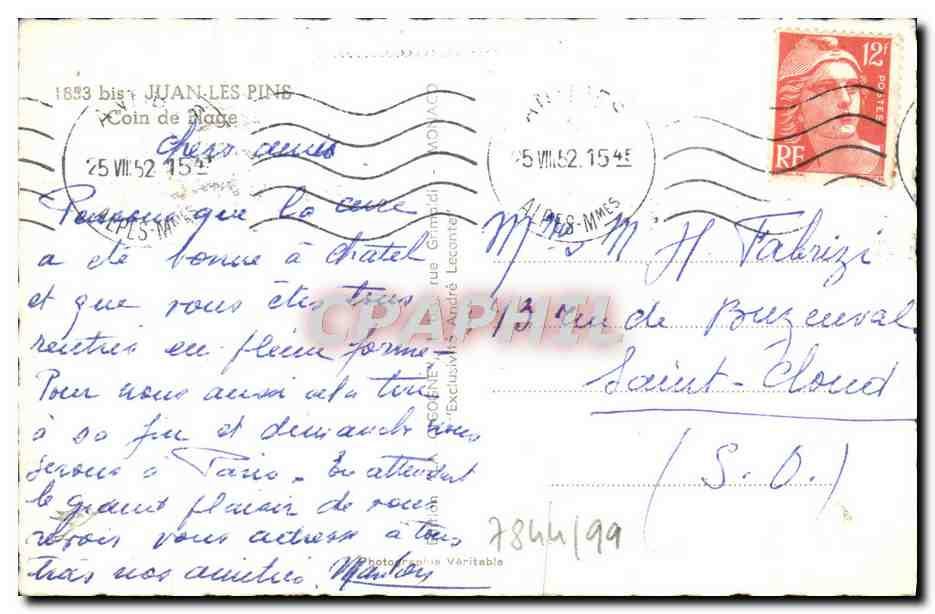 1883 bis - JUAN-LES PINS
Coin de Plage
12F
POSTES
RF
25 VII.52 15 45
ALPES-MMES
25 VII.52.15 45
ALPES-MMES
Chers amis
Pensons que la cure
a été bonne à Chatel
et que vous êtes tous
rentrés en pleine forme -
Pour nous aussi cela tire
à sa fin et dimanche nous
serons à Paris. En attendant
le grand plaisir de vous
revoir vous adresse à tous
tras nos amitiés.
Mme M H. Fabrizi
13 rue de Buzenval
Saint-Cloud
(S. O.)
7844/99
rue Grimaldi - MONACO
"Exclusivité André Leconte"
Photographie Véritable
CPAPHIL